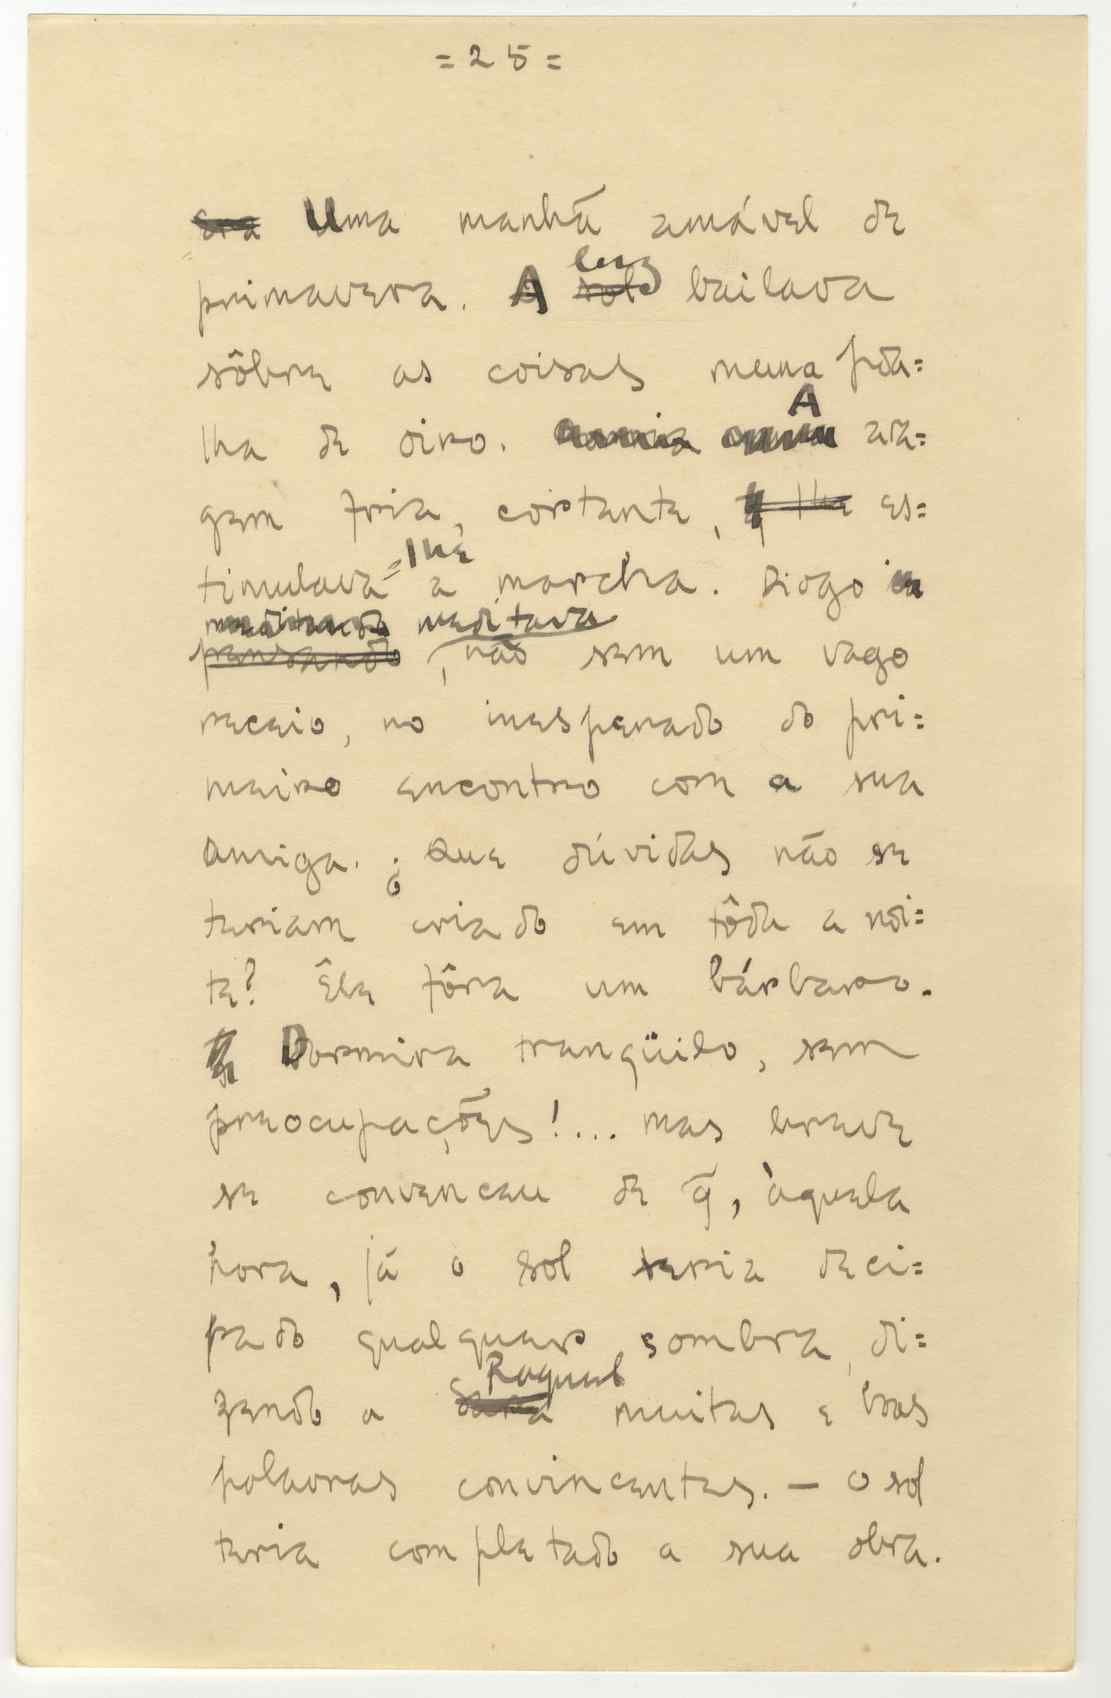 = 25 =
era Uma manhã amável de
luz
primavera. A sol bailava
sôbre as coisas numa poa=
A
lha de oiro. ara=
gem fria, cortante, q lhe es=
=lhe
timulava a marcha. Diogo ia
meditando meditava
pensando, não sem um vago
receio, no inesperado do pri=
meiro encontro com a sua
amiga. ¿Que dúvidas não se
teriam criado em tôda a noi=
te? Êle fôra um bárbaro.
Dormira tranqüilo, sem
preocupações!... mas breve
se convenceu de q̃, àquela
hora, já o sol teria deci=
pado qualquer sombra, di=
Raquel
zendo a Sara muitas e boas
palavras convincentes. — O sol
teria completado a sua obra.